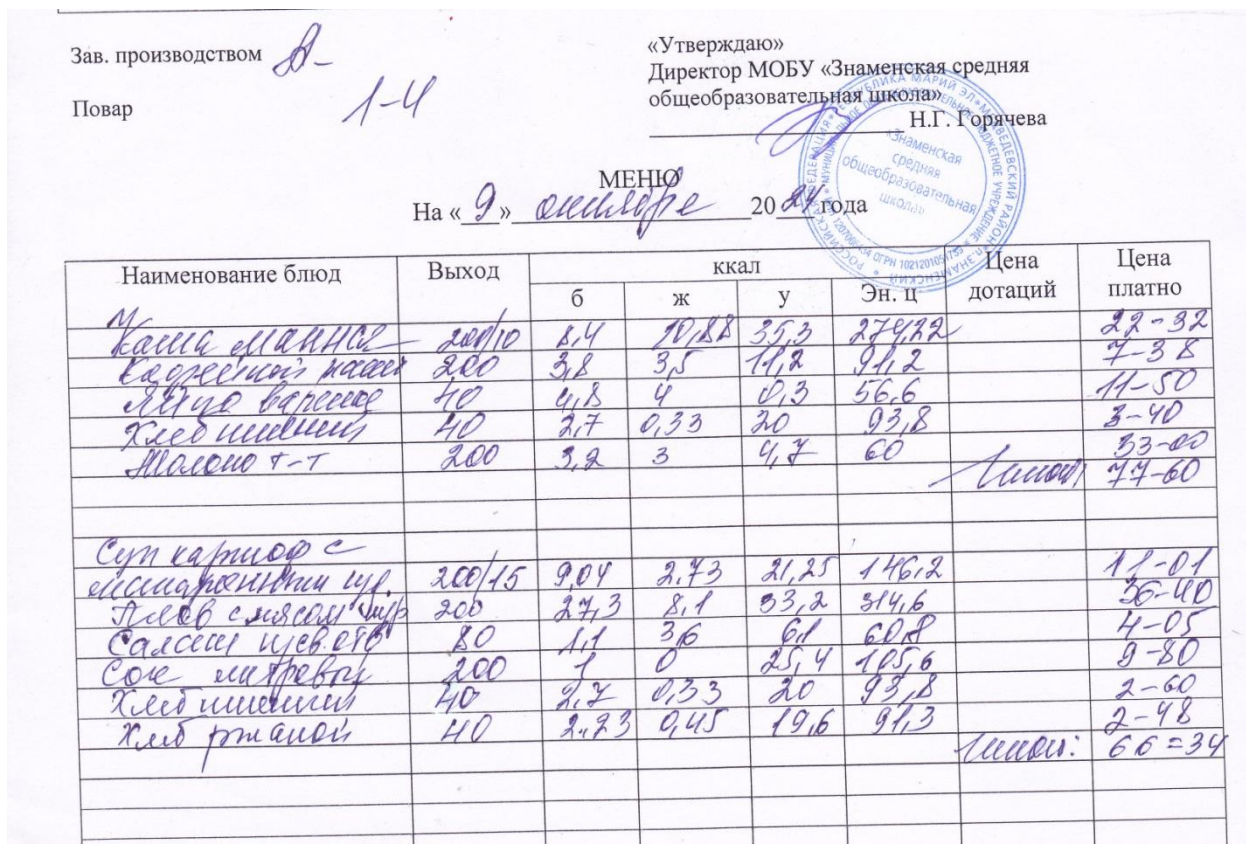 Зав. производством
Повар
1-4
«Утверждаю»
Директор МОБУ «Знаменская средняя
общеобразовательная школа»
Н.Г. Горячева
«Знаменская
средняя
общеобразовательная
школа»
МЕНЮ
На «9» октября 2024 года
Наименование блюд Выход ккал Цена дотаций Цена платно
б ж у Эн. ц
Каша манная 200/10 8,4 10,88 35,3 274,22 22-32
Кофейный напит 200 3,8 3,5 11,2 91,2 7-38
Яйцо вареное 40 4,8 4 0,3 56,6 11-50
Хлеб пшенич 40 2,7 0,33 20 93,8 3-40
Молоко т-т 200 3,2 3 4,7 60 33-00
Итого: 77-60
Суп картоф с
200/15 9,04 2,73 21,25 146,2 11-01
Плов с мясом кур 200 27,3 8,1 33,2 314,6 36-40
Салат из св. 80 1,1 3,6 6,1 60,8 4-05
Сок литровый 200 1 0 25,4 105,6 9-80
Хлеб пшенич 40 2,7 0,33 20 93,8 2-60
Хлеб ржаной 40 0,45 19,6 91,3 2-48
Итого: 66=34